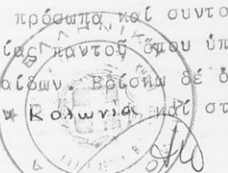 πρόσωπα καί συντο
ίας παντοῦ ὅπου ὑπ
αίδων. Βρίσκω δέ ὅ
Κολωνία καί στ